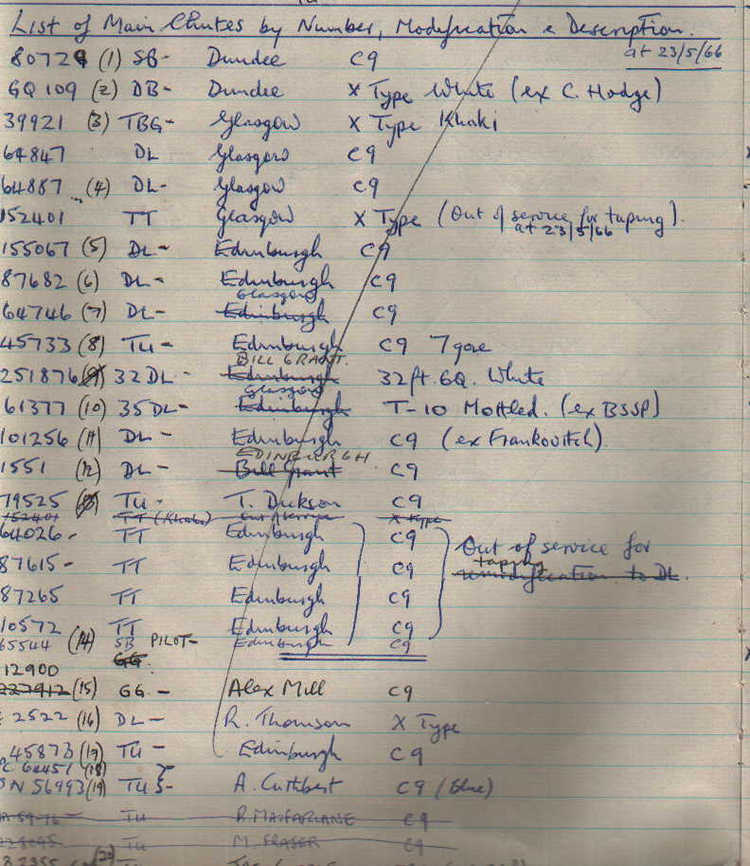 List of Main Chutes by Number, Modification & Description.
at 23/5/66
80729 (1) SB- Dundee C9
GQ 109 (2) DB- Dundee X Type White (ex C. Hodge)
39921 (3) TBG- Glasgow X Type Khaki
64847 DL Glasgow C9
64887 (4) DL- Glasgow C9
152401 TT Glasgow X Type (Out of service for taping).
at 23/5/66
155067 (5) DL- Edinburgh C9
87682 (6) DL- Edinburgh C9
Glasgow
64746 (7) DL- Edinburgh C9
45733 (8) TU- Edinburgh C9 7 gore
BILL GRANT.
251876 (9) 32 DL- Edinburgh 32ft. GQ. White
Glasgow
61377 (10) 35 DL- Edinburgh T-10 Mottled. (ex BSSP)
101256 (11) DL- Edinburgh C9 (ex Frankovitch)
EDINBURGH.
1551 (12) DL- Bill Grant C9
79525 TU- T. Dickson C9
152401 TT (Khaki) X Type
64026- TT Edinburgh C9 Out of service for
87615- TT Edinburgh C9 tapping
remodification to DL.
87265 TT Edinburgh C9
10572 TT Edinburgh C9
65544 (14) SB PILOT- Edinburgh C9
GG
12900
227912 (15) GG- Alex Mill C9
2522 (16) DL- R. Thomson X Type
45873 (17) TU- Edinburgh C9
64451 (18)
56993 (19) TU S- A. Cuthbert C9 (blue)
TU P. MACFARLANE C9
TU M. FRASER C9
(20)